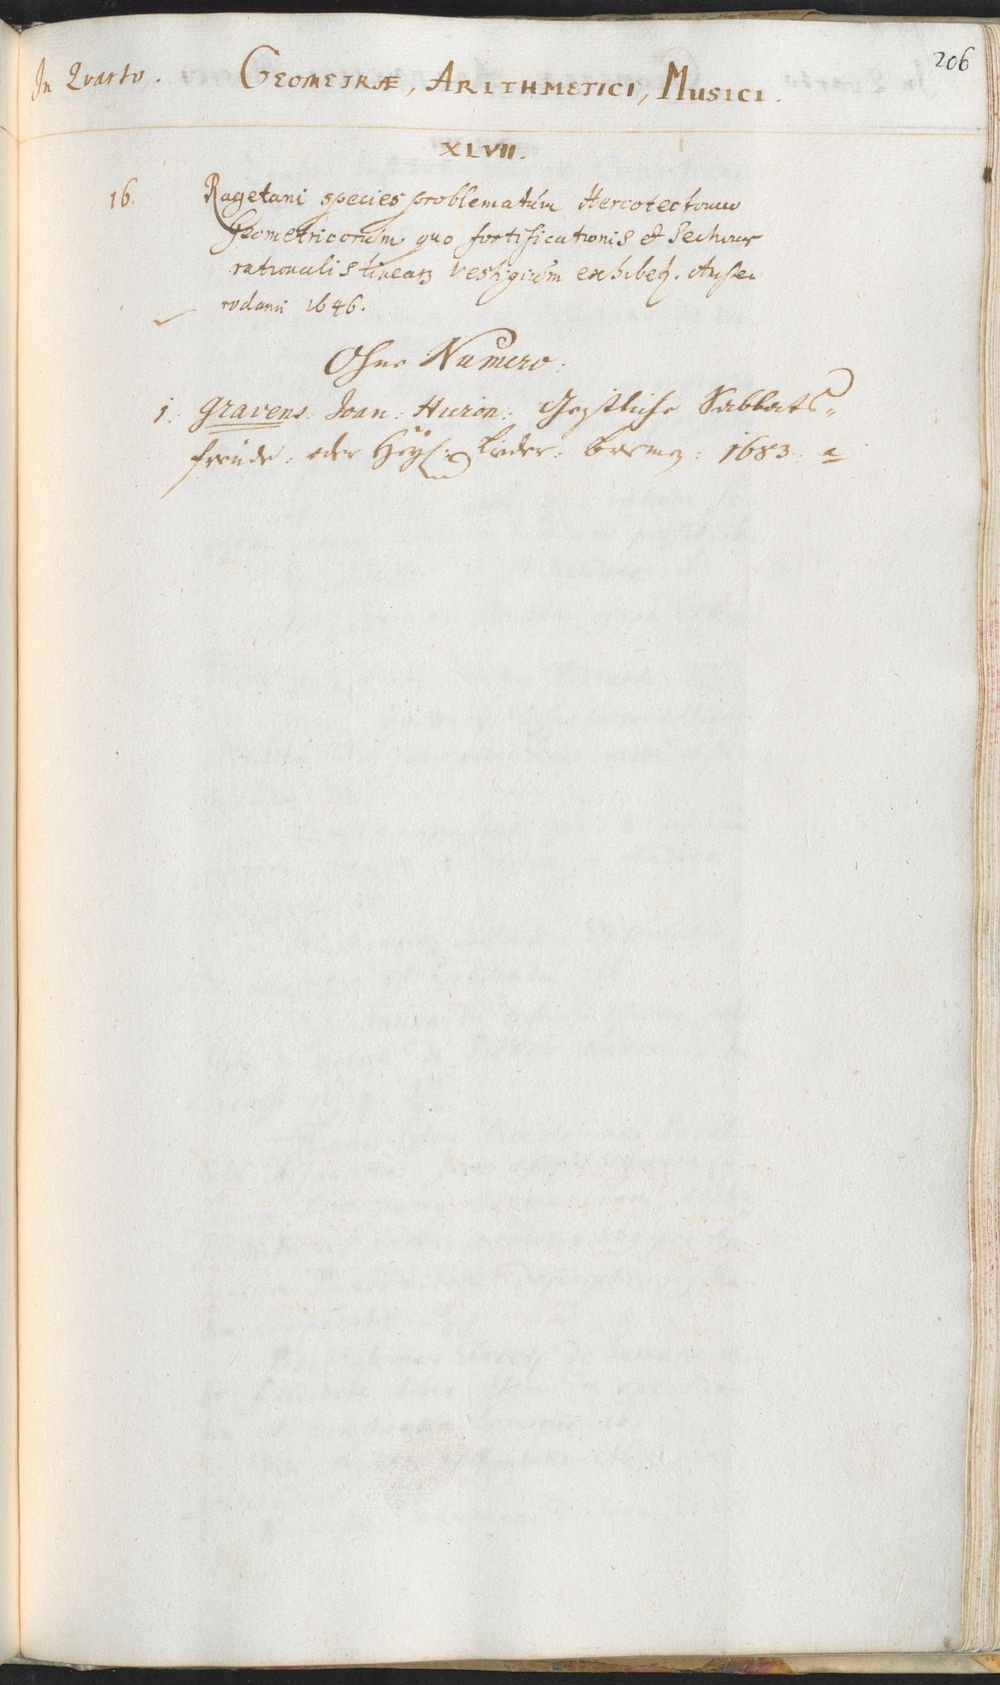 206
In Quarto. GEOMETRÆ, ARITHMETICI, MUSICI.
XLVII.
16. Ragetani species problematum Hercotectonico
Geometricorum quo fortificationis et Sectionis
rationalis linearum vestigium exhibetur. Amste
rodami 1646.
Ohne Numero.
1. Gravens. Joan: Hieron: Geistliche Sabbats-
freude. oder Lieder. Bremen. 1683.